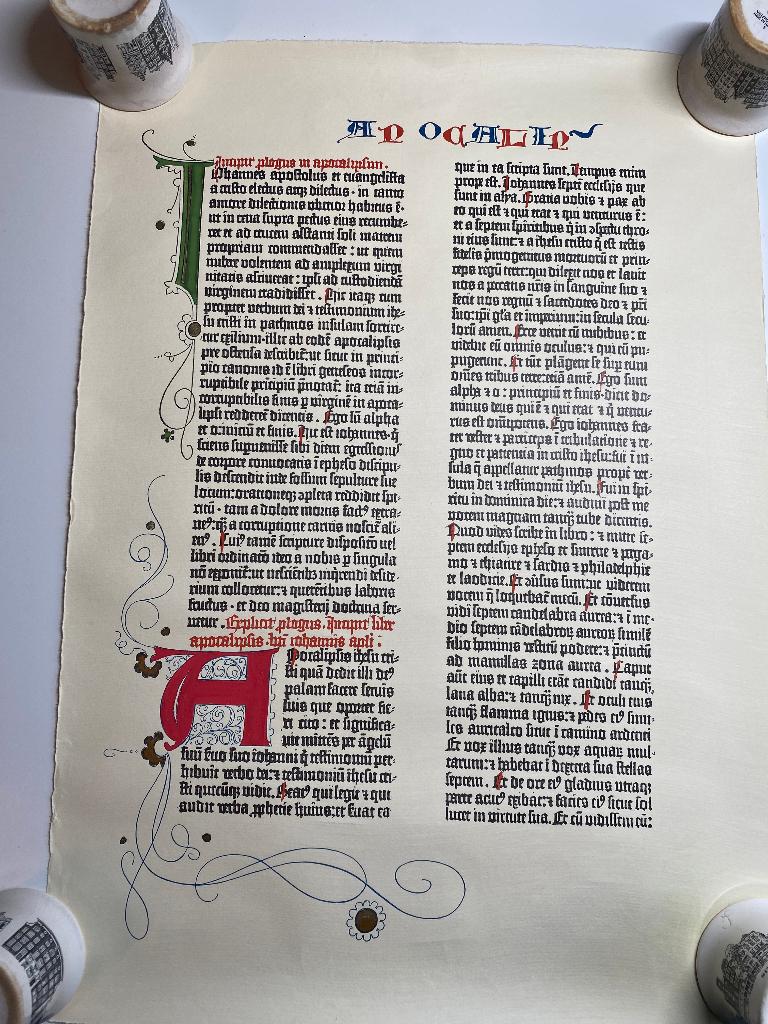 APOCALIPS
Incipit plogus in apocalipsim.
Iohannes apostolus et euangelista
a cristo electus atq; dilectus · in tanto
amore dilectionis uberior habitus ē·
ut in cena supra pectus eius recumbe-
ret et ad crucem astanti soli matrem
propriam commendasset : ut quem
nubere volentem ad amplexum virgi
nitatis asciuerat : ipsi ad custodiendā
virginem tradidisset . Hic itaq; cum
propter verbum dei ⁊ testimonium ihe-
su cristi in pathmos insulam sortire-
tur exilium·illic ab eodē apocalipsis
pre ostensa describit:ut sicut in princi-
pio canonis id ē libri geneseos incor-
ruptibile principiū pnotat̄: ita etiā in-
corruptibilis finis p virginē in apoca-
lipsi redderet̄ dicentis . Ego sū alpha
et o·iniciū et finis. Hic est iohannes·q̄
sciens supuenisse sibi diem egressionis
de corpore·conuocatis ī epheso discipu-
lis descendit inde fossum sepulture sue
locum:orationeq; ɔpleta reddidit spi-
ritū · tam a dolore mortis factꝰ extra-
neꝰ:q̄ a corruptione carnis noscit̄ ali-
enꝰ. Cuiꝰ tamē scripture dispositio uel
libri ordinatio ideo a nobis p singula
nō exponit̄:ut nescientibs inqrendi deside-
rium collocetur:⁊ querētibus laboris
fructus · et deo magisterij doctrina ser-
uetur . Explicit plogus. Incipit liber
apocalipsis bti iohannis apli :
Apocalipsis ihesu cri-
sti quā dedit illi deꝰ
palam facere seruis
suis que oportet fie-
ri cito : et significa-
uit mittēs per āgelū
suū suo iohanni q̄ testimonium per-
hibuit verbo dei:⁊ testimoniū ihesu cri-
sti quecūq; vidit. Beatꝰ qui legit ⁊ qui
audit verba pphetie huius:et suat ea
que in ea scripta sunt. Tempus enim
prope est. Iohannes septē ecclesijs que
sunt in asya. Gratia vobis ⁊ pax ab
eo qui est ⁊ qui erat ⁊ qui venturus ē:
et a septem spiritibus q̄ in ɔspectu thro-
ni eius sunt:⁊ a ihesu cristo q̄ est testis
fidelis pmogenitus mortuorū et prin-
ceps regū terre:qui dilexit nos et lauit
nos a peccatis nr̄is in sanguine suo ⁊
fecit nos regnū ⁊ sacerdotes deo ⁊ pr̄i
suo:ipi gl̄a et imperium:in secula secu-
lorū amen. Ecce venit cū nubibus : et
videbit eū omnis oculus:⁊ qui eū pu-
pugerunt. Et tūc plāgent se sup eum
om̄es tribus terre:etiā amē. Ego sum
alpha ⁊ o : principiū et finis·dicit do-
minus deus qui ē ⁊ qui erat ⁊ q̄ ventu-
rus est om̄potens. Ego iohannes fra-
ter vester ⁊ particeps ī tribulatione ⁊ re-
gno et patientia in cristo ihesu:fui ī in-
sula q̄ appellatur pathmos propt̄ ver-
bum dei ⁊ testimoniū ihesu. Fui in spi-
ritu in dominica die:⁊ audiui post me
vocem magnam tanq̄ tube dicentis.
Quod vides scribe in libro : ⁊ mitte se-
ptem ecclesijs epheso et smirne ⁊ perga-
mo ⁊ thiatire ⁊ sardis ⁊ philadelphie
et laodicie. Et ɔuersus sum:ut viderem
vocem q̄ loquebat̄ mecū. Et ɔuersus
vidi septem candelabra aurea:⁊ ī me-
dio septem cādelabroꝝ aureoꝝ similē
filio hominis vestitū podere:⁊ pcinctū
ad mamillas zona aurea . Caput
aūt eius et capilli erāt candidi tanq̄
lana alba:⁊ tanq̄ nix . Et oculi eius
tanq̄ flamma ignis:⁊ pedes eiꝰ simi-
les auricalco sicut ī camino ardenti
Et vox illius tanq̄ vox aquaꝝ mul-
tarum:⁊ habebat ī dextera sua stellas
septem. Et de ore eiꝰ gladius utraq;
parte acutꝰ exibat:⁊ facies eiꝰ sicut sol
lucet in virtute sua. Et cū vidissem eū: